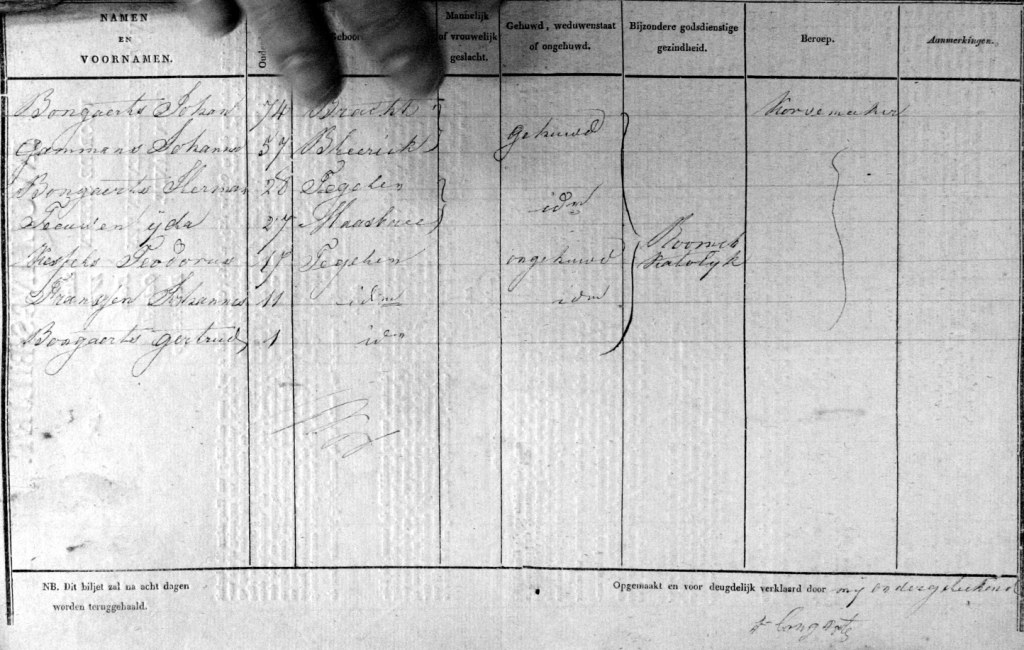 NAMEN EN VOORNAMEN. Oud Geboor Mannelijk of vrouwelijk geslacht. Gehuwd, weduwenstaat of ongehuwd. Bijzondere godsdienstige gezindheid. Beroep. Aanmerkingen.
Bongaerts Johan 74 Bracht Korvemaker
Gommans Johanna 57 Blerick gehuwd
Bongaerts Herman 28 Tegelen
Teeuwen ijda 27 Maasbree idm
Kessels Teodorus 18 Tegelen ongehuwd Roomsch Katolyk
Franssen Johannes 11 idm idm
Bongaerts gertrud 1 idm
NB. Dit biljet zal na acht dagen
worden teruggehaald.
Opgemaakt en voor deugdelijk verklaard door mij ondergetekend
Bongartz